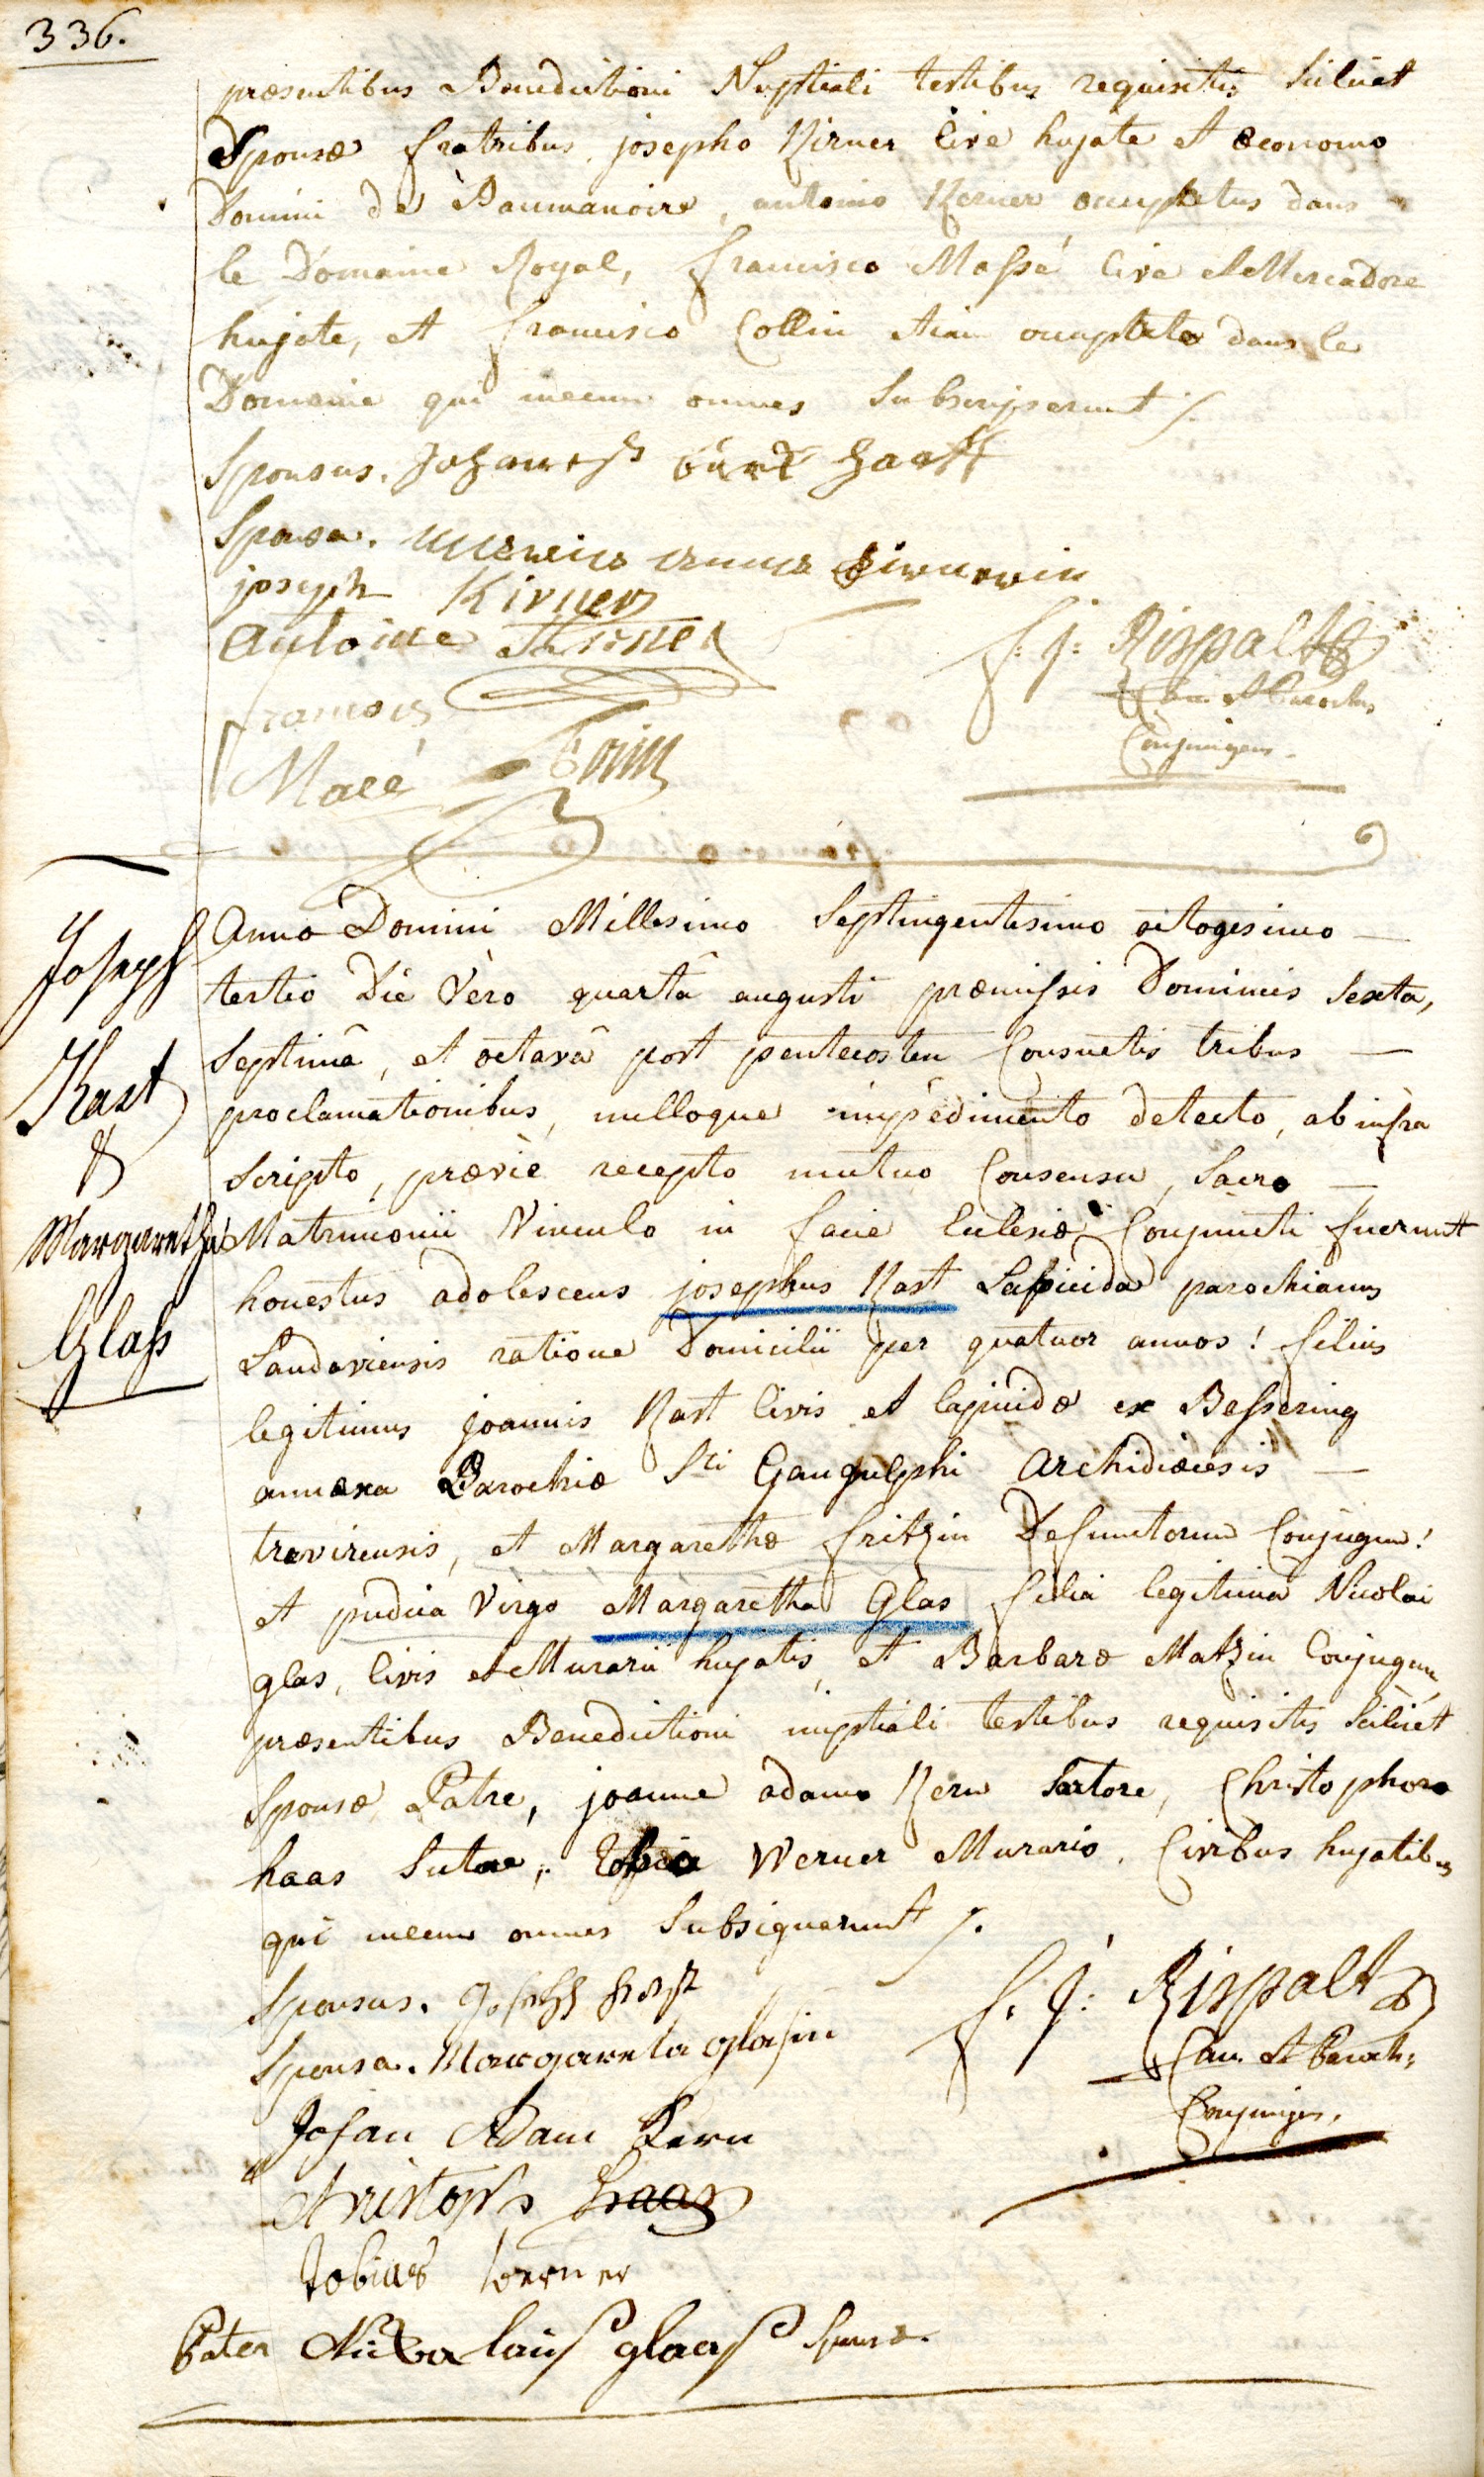 336.
præsentibus Benedictioni Nuptiali testibus requisitis scilicet
Sponsæ fratribus, josepho Kirner Cive hujate et œconomo
Domini de Baumanoire, antonio Kerner occupatus dans
le Domaine Royal, francisco Massé Cive et Mercadore
hujate, et francisco Collin etiam occupato dans le
Domaine qui mecum omnes Subscripserunt /.
Sponsus. Johannes
Sponsa.
joseph Kirner
Antoine Kirner
francois
Macé
f: j: Rispalt
Can. et Parochus
Conjungens.
Joseph
Kast
&
Margaretha
Glass
Anno Domini Millesimo Septingentesimo octogesimo
tertio Die Vero quartâ augusti præmissis Dominicis Sexta,
Septimâ, et octavâ post pentecosten Consuetis tribus
proclamationibus, nulloque impedimento detecto, ab infra
scripto, prævié recepto mutuo Consensu, Sacro
Matrimonii Vinculo in facie Eclesiæ Conjuncti fuerunt
honestus adolescens josephus Kast Lapicida parochianus
Landaviensis ratione Domicilii per quatuor annos! filius
legitimus joannis Kast Civis et lapicidæ ex Bessering
annexa Parochiæ Sti Gangulphi Archidiœcesis
trevirensis, et Margarethæ fritzin Defunctorum Conjugum!
et pudica Virgo Margaretha Glas filia legitima Nicolai
glas, Civis et Murarii hujatis, et Barbaræ Matzin Conjugum,
præsentibus Benedictioni nuptiali testibus requisitis Scilicet
Sponsæ Patre, joanne adamo Kern Sartore, Christophoro
haas Sutore, Werner Murario, Civibus hujatibus
qui mecum omnes Subsignarunt /.
Sponsus. Joseph Kast
Sponsa. Margareta glasin
Johan Adam Kern
Christoph Haas
Tobias Werner
Pater Nickolaus glaas Sponsæ.
f. j: Rispalt
Can. et Paroch:
Conjungens.